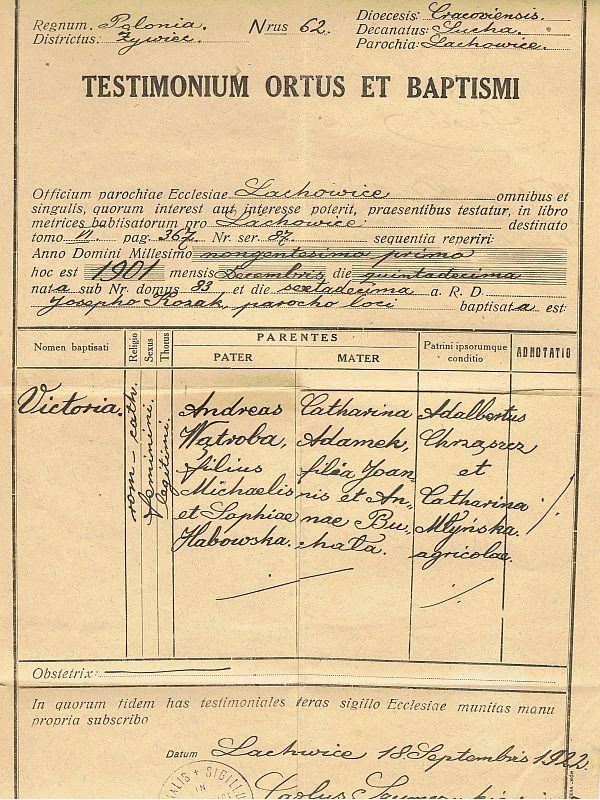 Regnum. Polonia.
Districtus: Żywiec.
Nrus 62.
Dioecesis: Cracoviensis.
Decanatus: Sucha.
Parochia: Lachowice.
TESTIMONIUM ORTUS ET BAPTISMI
Officium parochiae Ecclesiae Lachowice omnibus et
singulis, quorum interest aut interesse poterit, praesentibus testatur, in libro
metrices babtisatorum pro Lachowice destinato
tomo III pag. 367 Nr. ser. 87 sequentia reperiri:
Anno Domini Millesimo nongentesimo primo
hoc est 1901 mensis Decembris die quintadecima
nata sub Nr. domus 83, et die sextadecima a. R. D.
Josepho Kozak, parocho loci baptisata est:
Nomen baptisati
Religio
Sexus
Thorus
PARENTES
PATER
MATER
Patrini ipsorumque
conditio
ADNOTATIO
Victoria.
rom-cath.
feminini.
legitimi.
Andreas
Wątroba,
filius
Michaelis
et Sophiae
Habowska.
Catharina
Adamek,
filia Joan-
nis et An-
nae Bu-
hata.
Adalbertus
Chrząszcz
et
Catharina
Młyńska.
agricolae.
Obstetrix:
In quorum fidem has testimoniales teras sigillo Ecclesiae munitas manu
propria subscribo
Datum Lachwice 18 Septembris 1922.
ALIS + SIGILLU
IN
Carolus